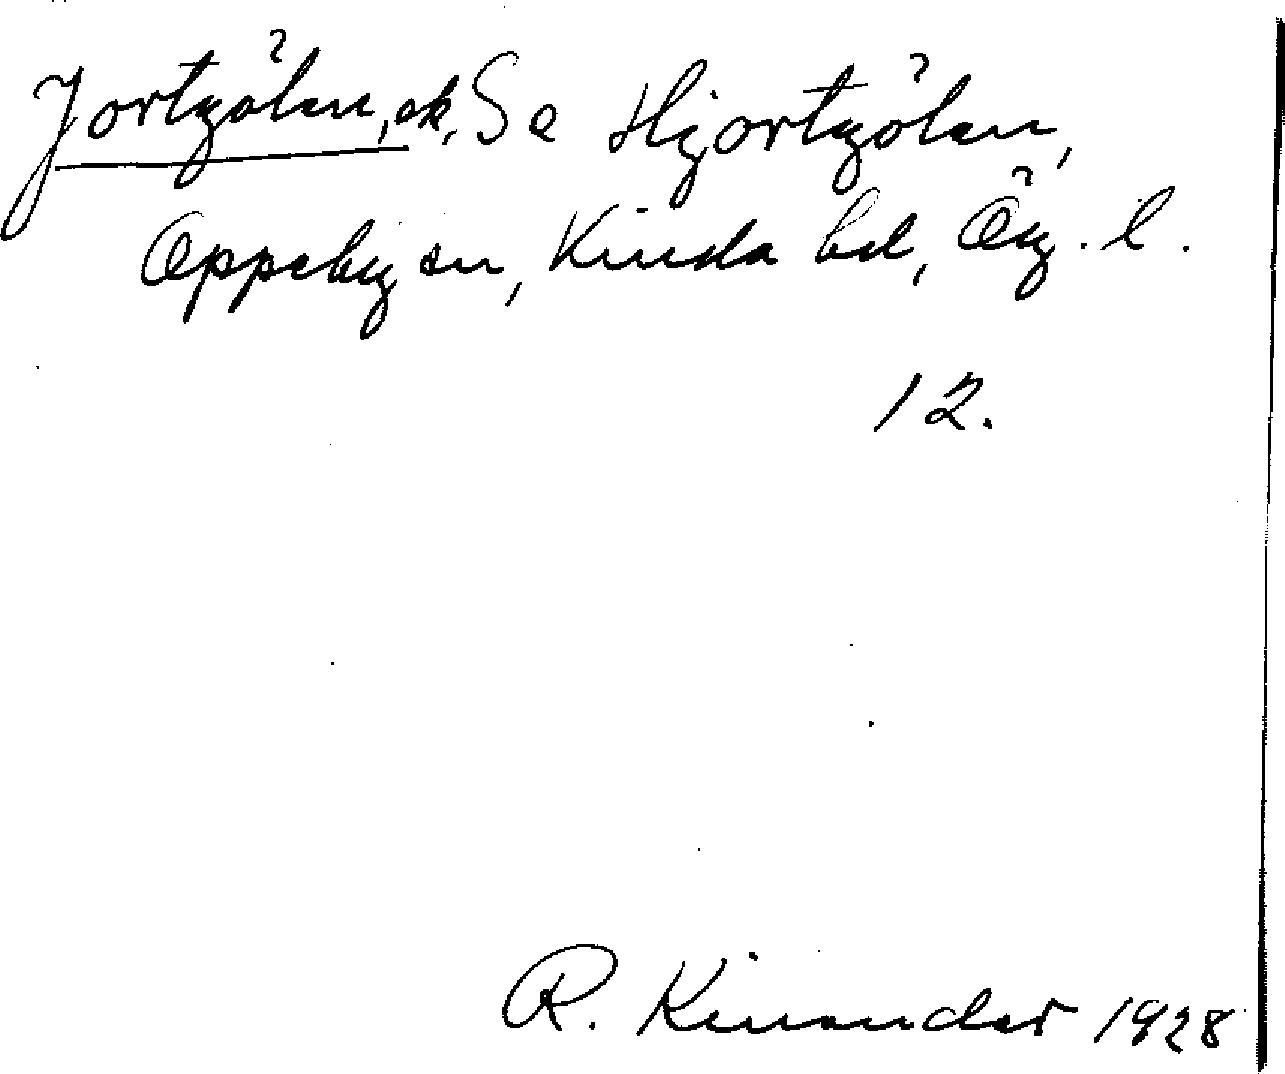 Jortgölen, ek. Se Hjortgölen,
Oppeby sn, Kinda hd, Ög. l.
12.
R. Kinander 1928